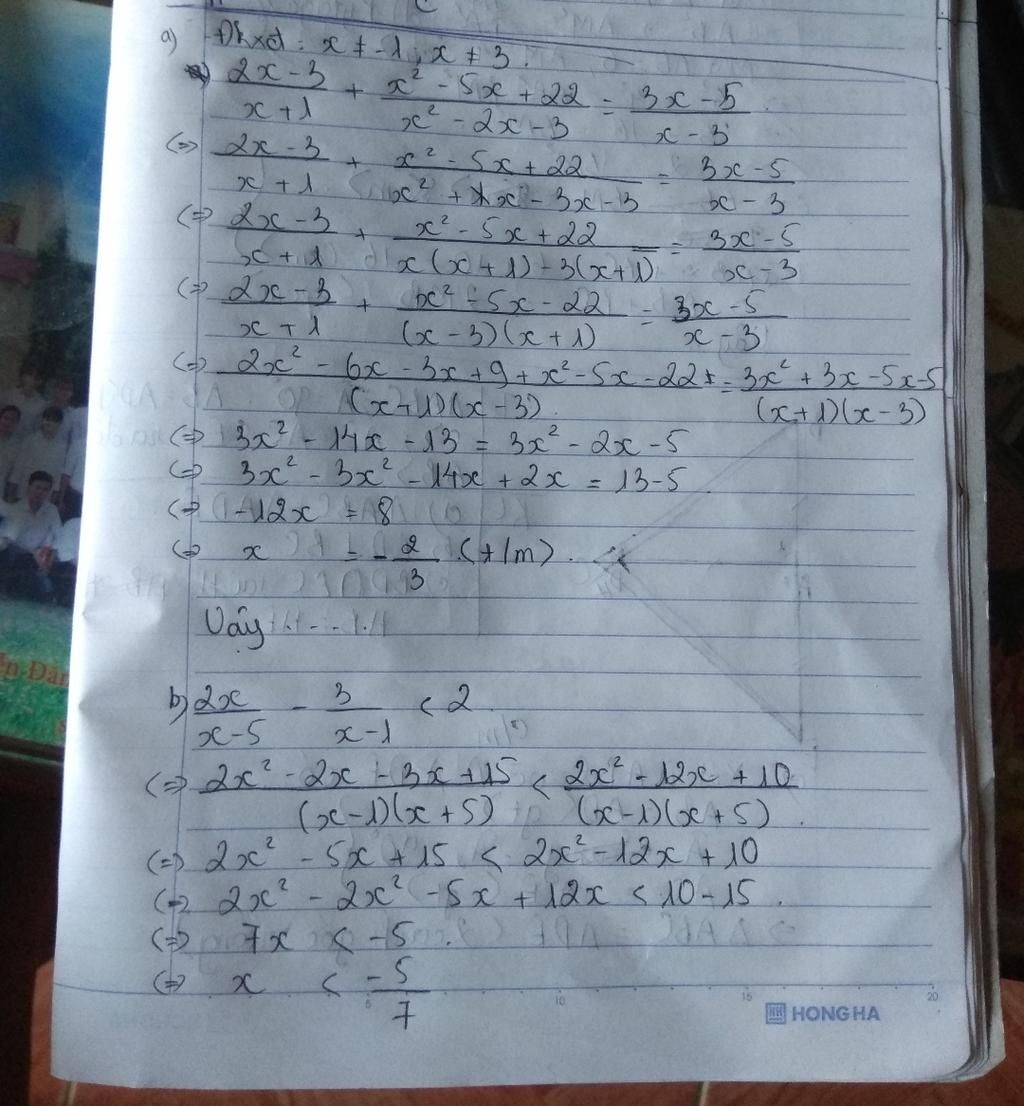 a) Đkxđ : x ≠ -1 ; x ≠ 3.
(2x - 3)/(x + 1) + (x² - 5x + 22)/(x² - 2x - 3) = (3x - 5)/(x - 3)
<=> (2x - 3)/(x + 1) + (x² - 5x + 22)/(x² + 1x - 3x - 3) = (3x - 5)/(x - 3)
<=> (2x - 3)/(x + 1) + (x² - 5x + 22)/(x(x + 1) - 3(x + 1)) = (3x - 5)/(x - 3)
<=> (2x - 3)/(x + 1) + (x² - 5x - 22)/((x - 3)(x + 1)) = (3x - 5)/(x - 3)
<=> (2x² - 6x - 3x + 9 + x² - 5x - 22)/((x + 1)(x - 3)) = (3x² + 3x - 5x - 5)/((x + 1)(x - 3))
<=> 3x² - 14x - 13 = 3x² - 2x - 5
<=> 3x² - 3x² - 14x + 2x = 13 - 5
<=> -12x = 8
<=> x = -2/3 (t/m).
Vậy ....
b) 2x/(x - 5) - 3/(x - 1) < 2
<=> (2x² - 2x - 3x + 15)/((x - 1)(x + 5)) < (2x² - 12x + 10)/((x - 1)(x + 5)).
<=> 2x² - 5x + 15 < 2x² - 12x + 10
<=> 2x² - 2x² - 5x + 12x < 10 - 15.
<=> 7x < -5.
<=> x < -5/7
5 10 15 20
HONG HA